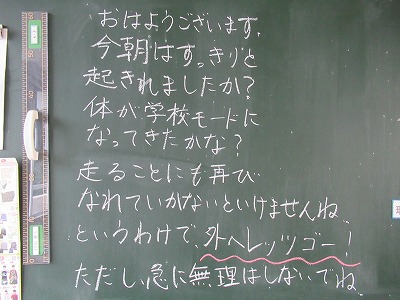 おはようございます。
今朝はすっきりと
起きれましたか?
体が学校モードに
なってきたかな?
走ることにも再び
なれていかないといけませんね。
というわけで、外へレッツゴー!
ただし、急に無理はしないでね。